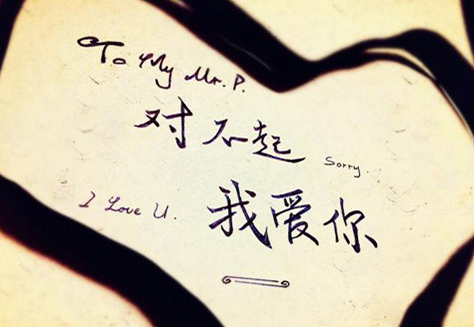 To My Mr. P.
对不起 Sorry..
I Love U. 我爱你